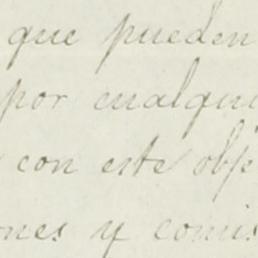 que pueden
por cualqui
con este obje
ones y comis